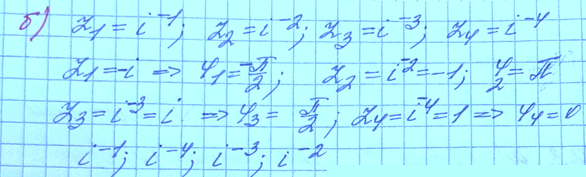 б) z₁ = i⁻¹; z₂ = i⁻²; z₃ = i⁻³; z₄ = i⁻⁴
z₁ = -i => φ₁ = -π/2; z₂ = i⁻² = -1; φ₂ = π
z₃ = i⁻³ = i => φ₃ = π/2; z₄ = i⁻⁴ = 1 => φ₄ = 0
i⁻¹; i⁻⁴; i⁻³; i⁻²